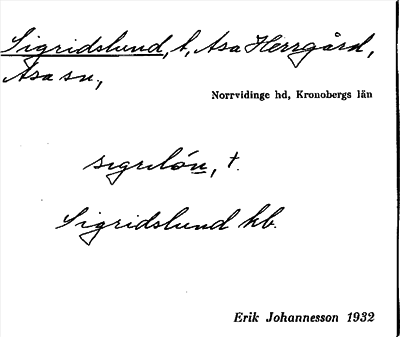 Sigridslund, t, Asa Herrgård,
Asa sn,
Norrvidinge hd, Kronobergs län
sigrelón, t.
Sigridslund hb.
Erik Johannesson 1932